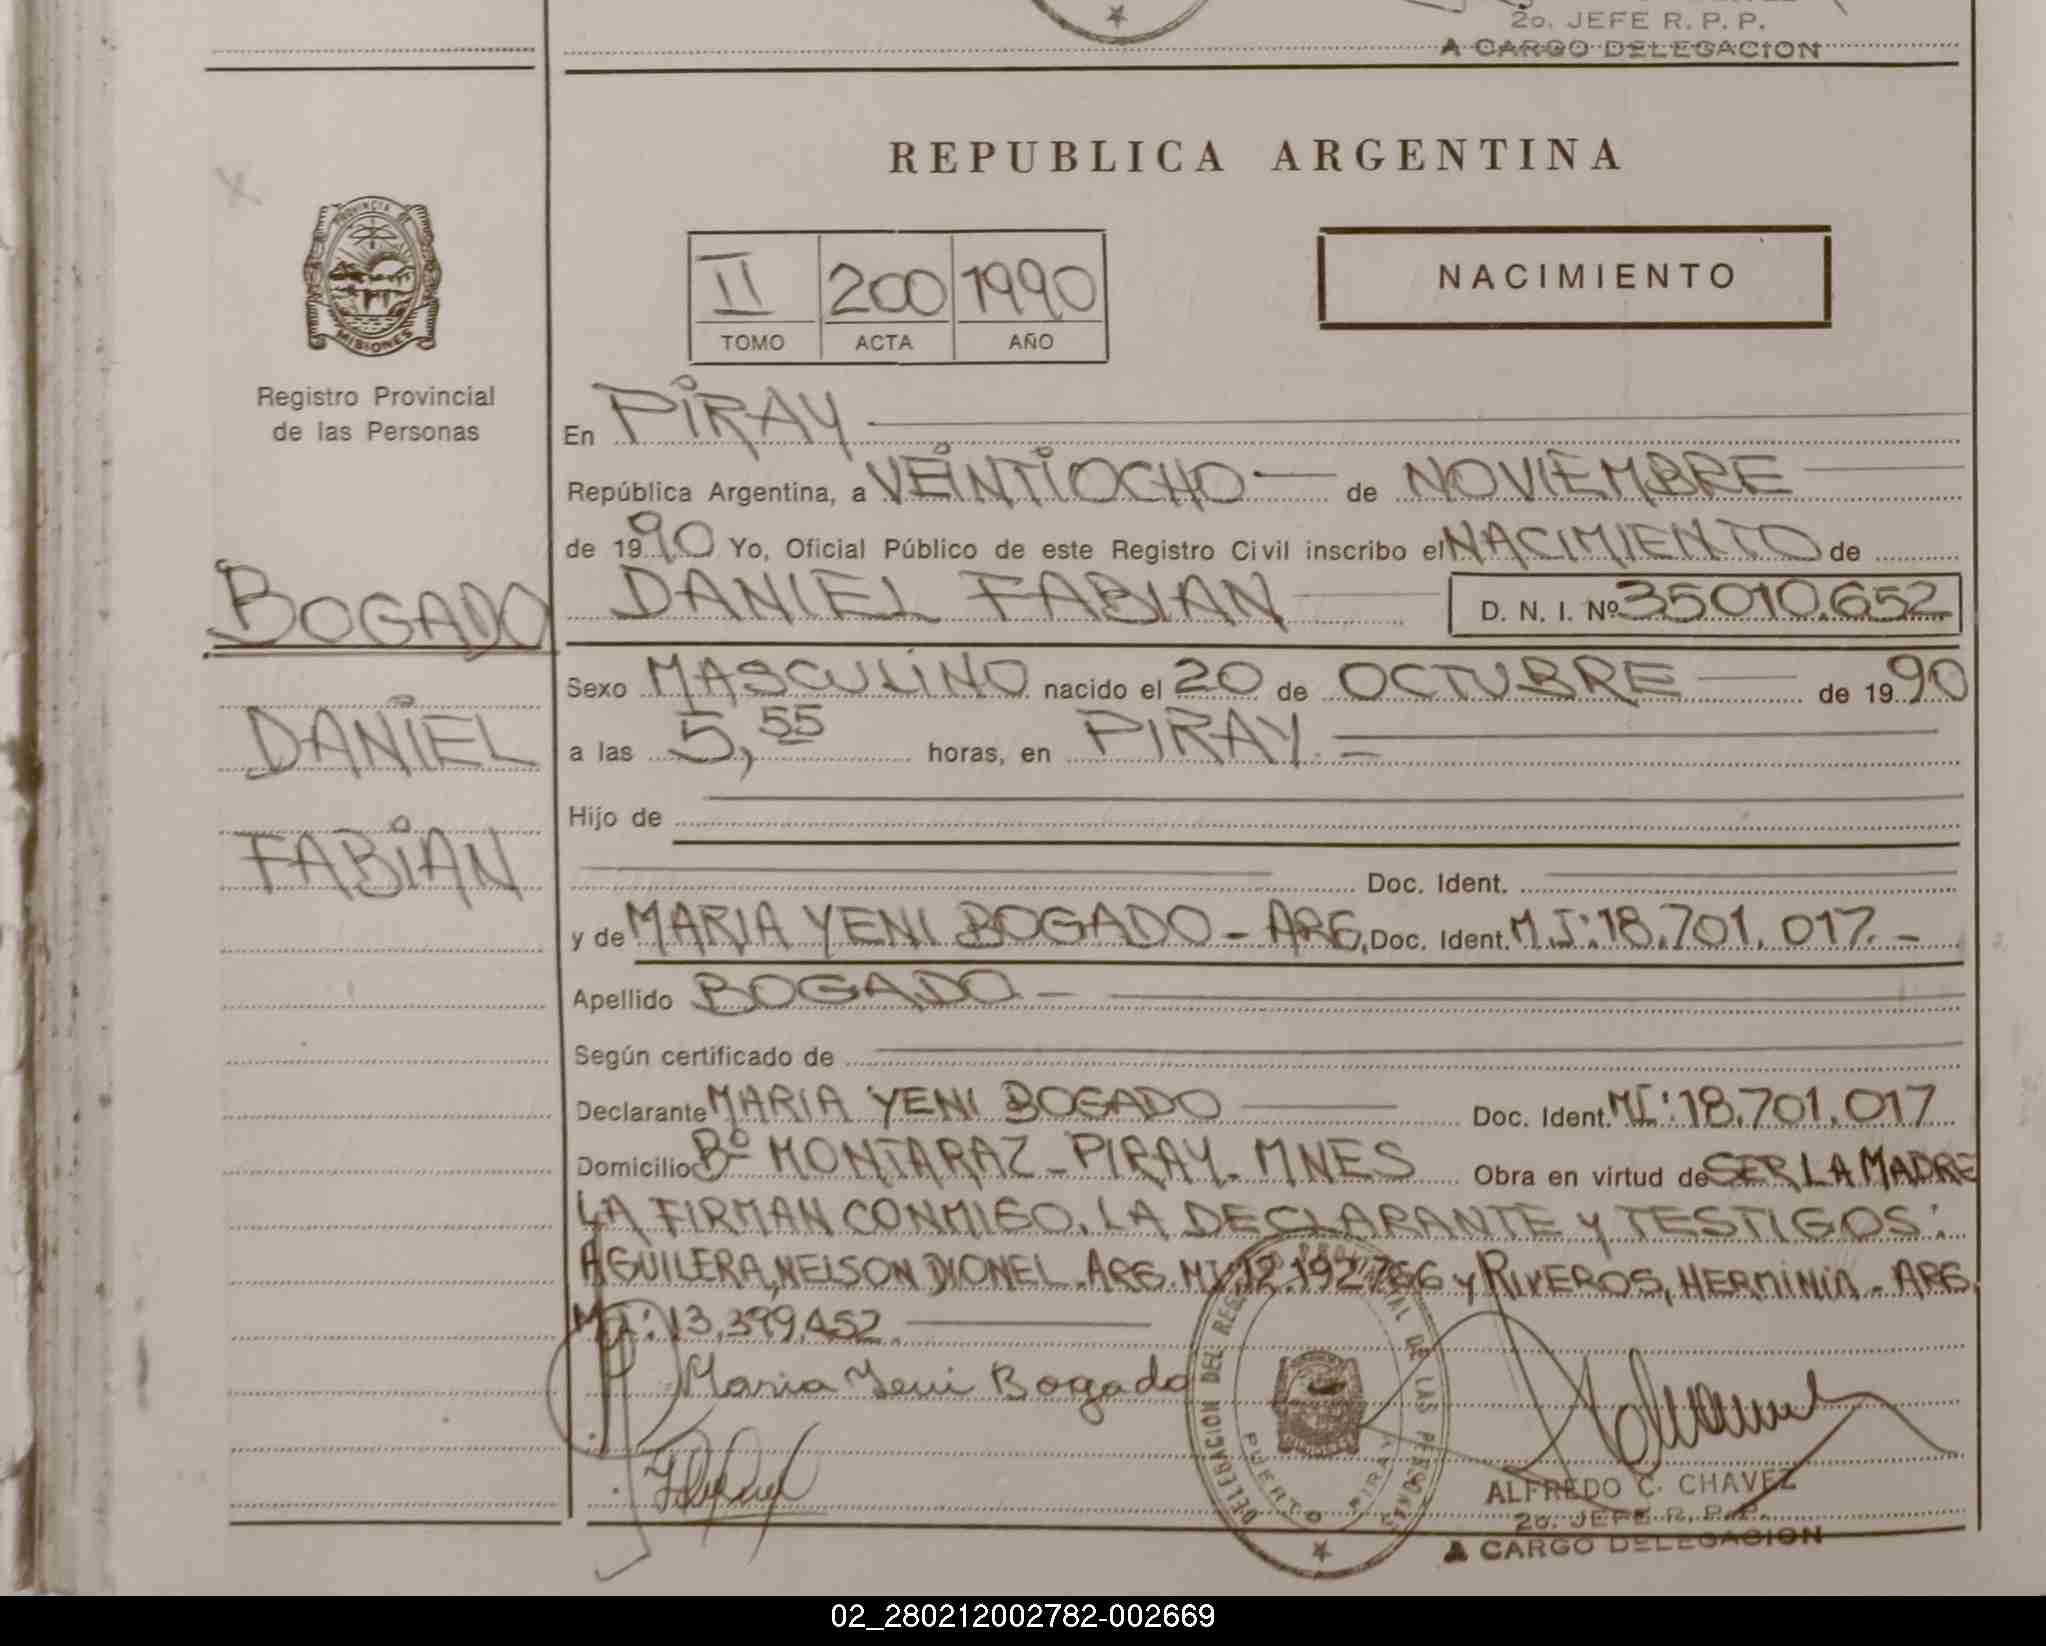 2o. JEFE R. P. P.
A CARGO DELEGACION
REPUBLICA ARGENTINA
PROVINCIA DE
MISIONES
Registro Provincial
de las Personas
II 200 1990
TOMO ACTA AÑO
NACIMIENTO
En PIRAY
República Argentina, a VEINTIOCHO de NOVIEMBRE
de 1990 Yo, Oficial Público de este Registro Civil inscribo el NACIMIENTO de
DANIEL FABIAN D. N. I. Nº 35010.652
BOGADO
DANIEL
FABIAN
Sexo MASCULINO nacido el 20 de OCTUBRE de 1990
a las 5,55 horas, en PIRAY.
Hijo de
Doc. Ident.
y de MARIA YENI BOGADO - ARG. Doc. Ident. M.I: 18.701.017.-
Apellido BOGADO -
Según certificado de
Declarante MARIA YENI BOGADO Doc. Ident. MI: 18.701.017
Domicilio Bº MONTARAZ - PIRAY - MNES Obra en virtud de SER LA MADRE
LA FIRMAN CONMIGO, LA DECLARANTE Y TESTIGOS:
AGUILERA, NELSON DIONEL. ARG. MI: 12.192.766 y RIVEROS, HERMINIA - ARG.
MI: 13.399.452.
Maria Yeni Bogado
DELEGACION DEL REGISTRO PROVINCIAL DE LAS PERSONAS
PUERTO PIRAY
ALFREDO C. CHAVEZ
2o. JEFE R. P. P.
A CARGO DELEGACION
02_280212002782-002669